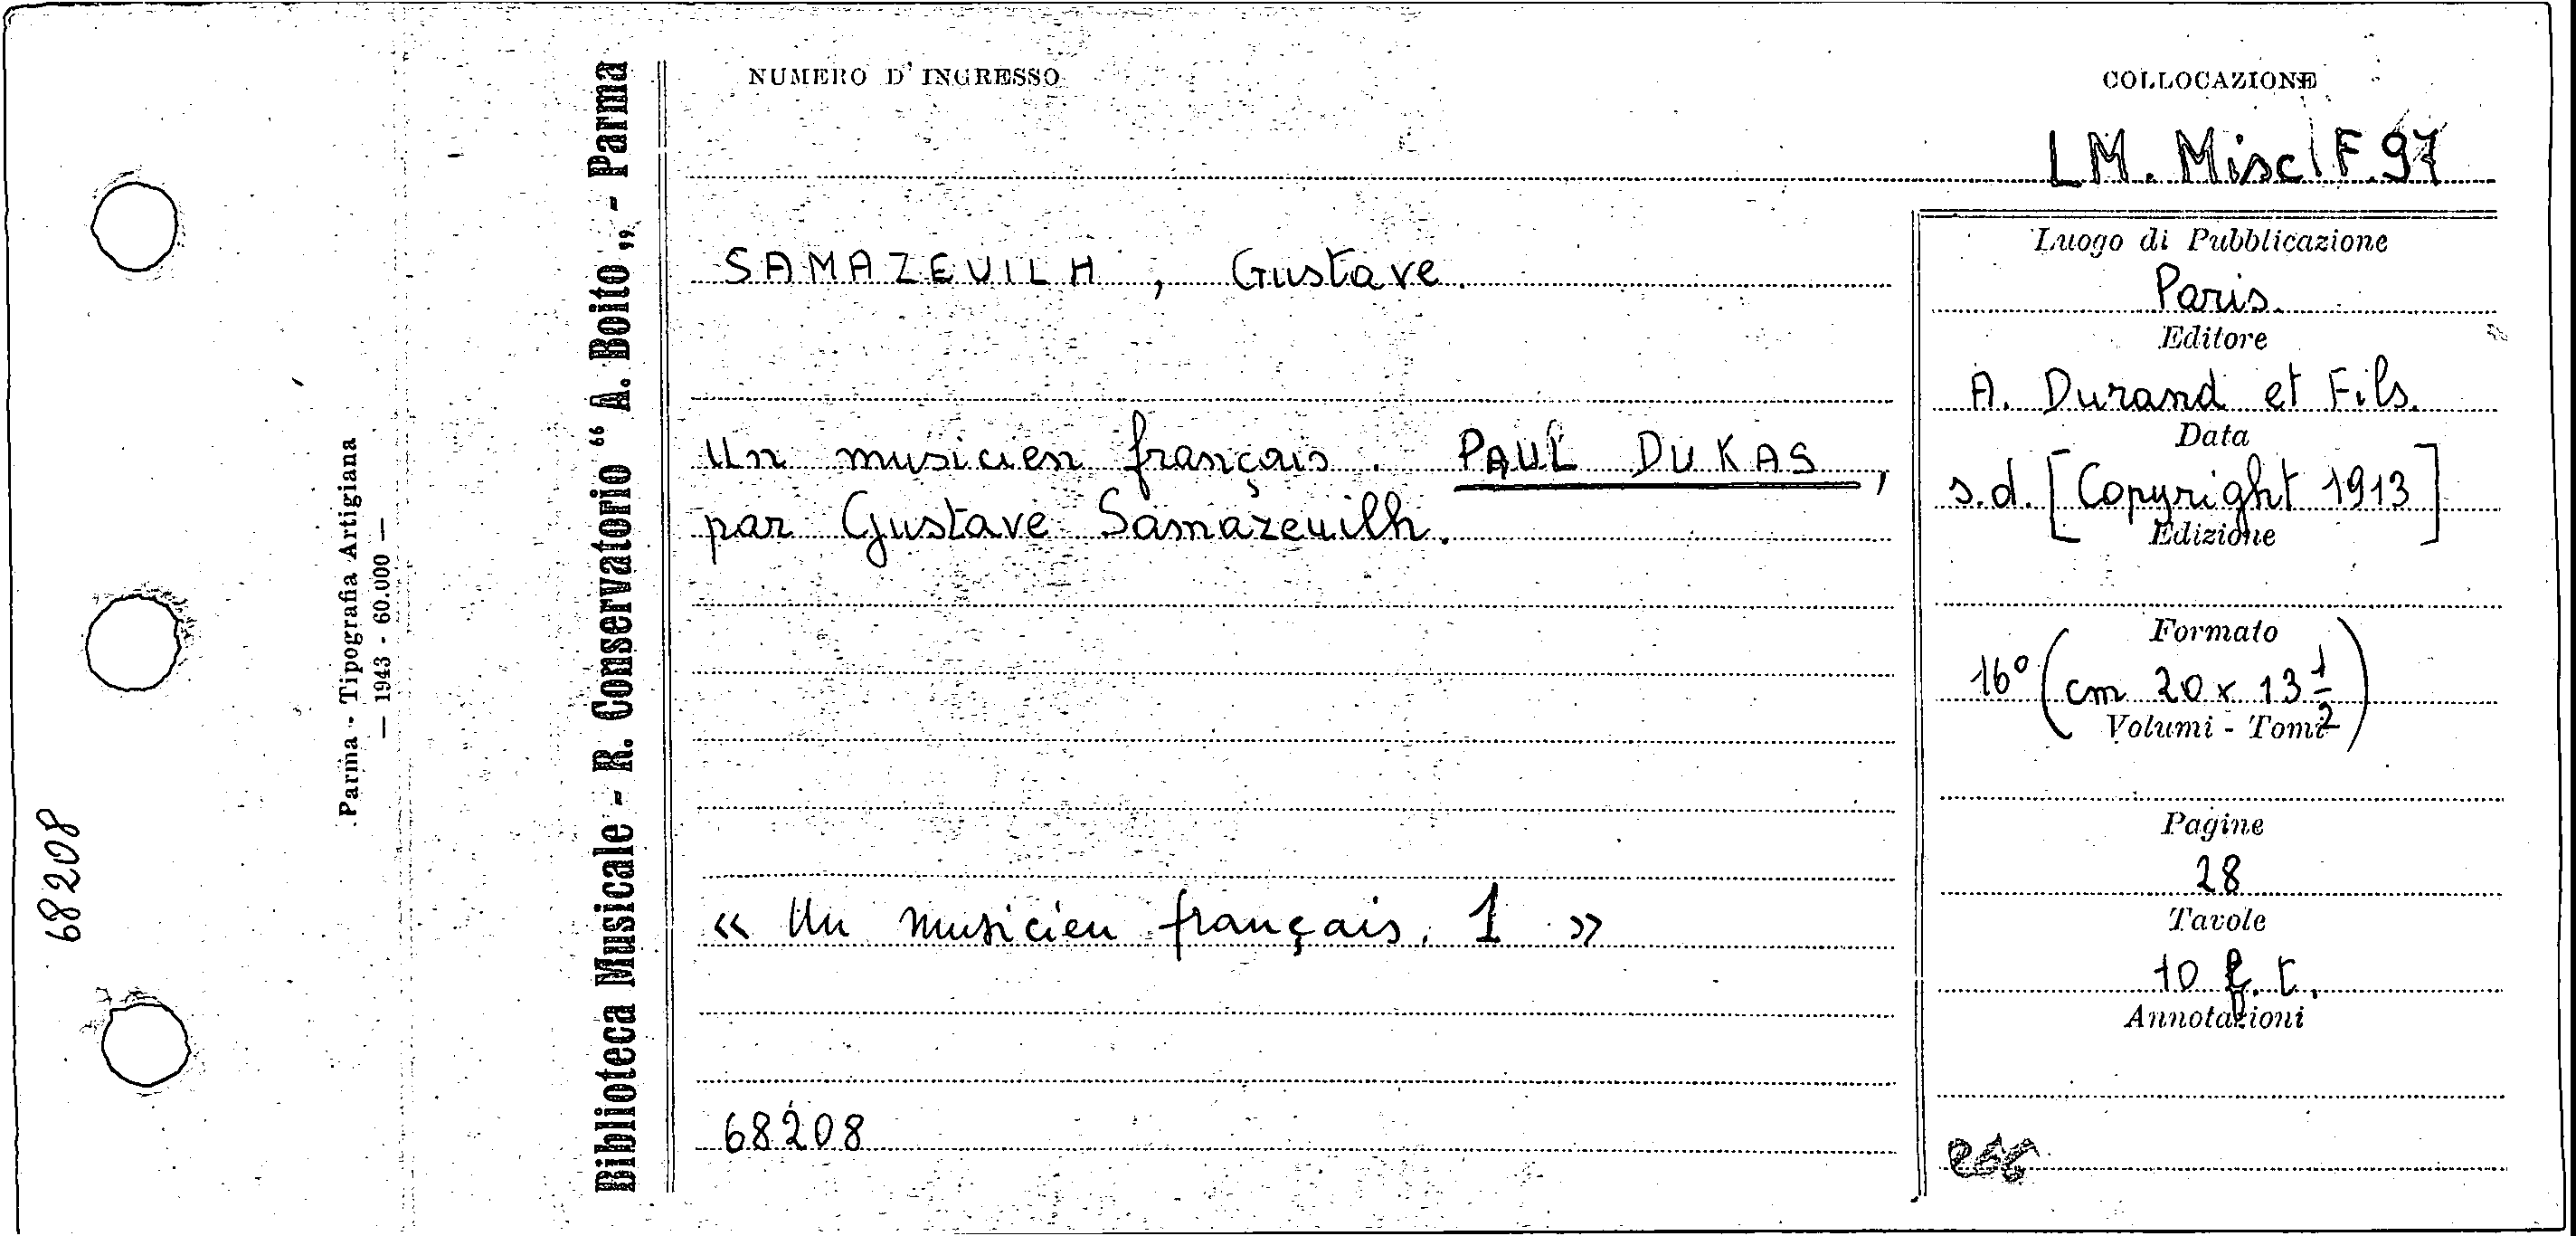 NUMERO D'INGRESSO
COLLOCAZIONE
LM. Misc F.97
SAMAZEUILH, Gustave.
Un musicien français. PAUL DUKAS,
par Gustave Samazeuilh.
« Un musicien français, 1 »
68208
Luogo di Pubblicazione
Paris.
Editore
A. Durand et Fils.
Data
s.d. [Copyright 1913]
Edizione
Formato
16° (cm 20 x 13 1/2)
Volumi - Tomi
Pagine
28
Tavole
10 f. t.
Annotazioni
Biblioteca Musicale - R. Conservatorio “A. Boito„ - Parma
Parma - Tipografia Artigiana
— 1943 - 60.000 —
68208